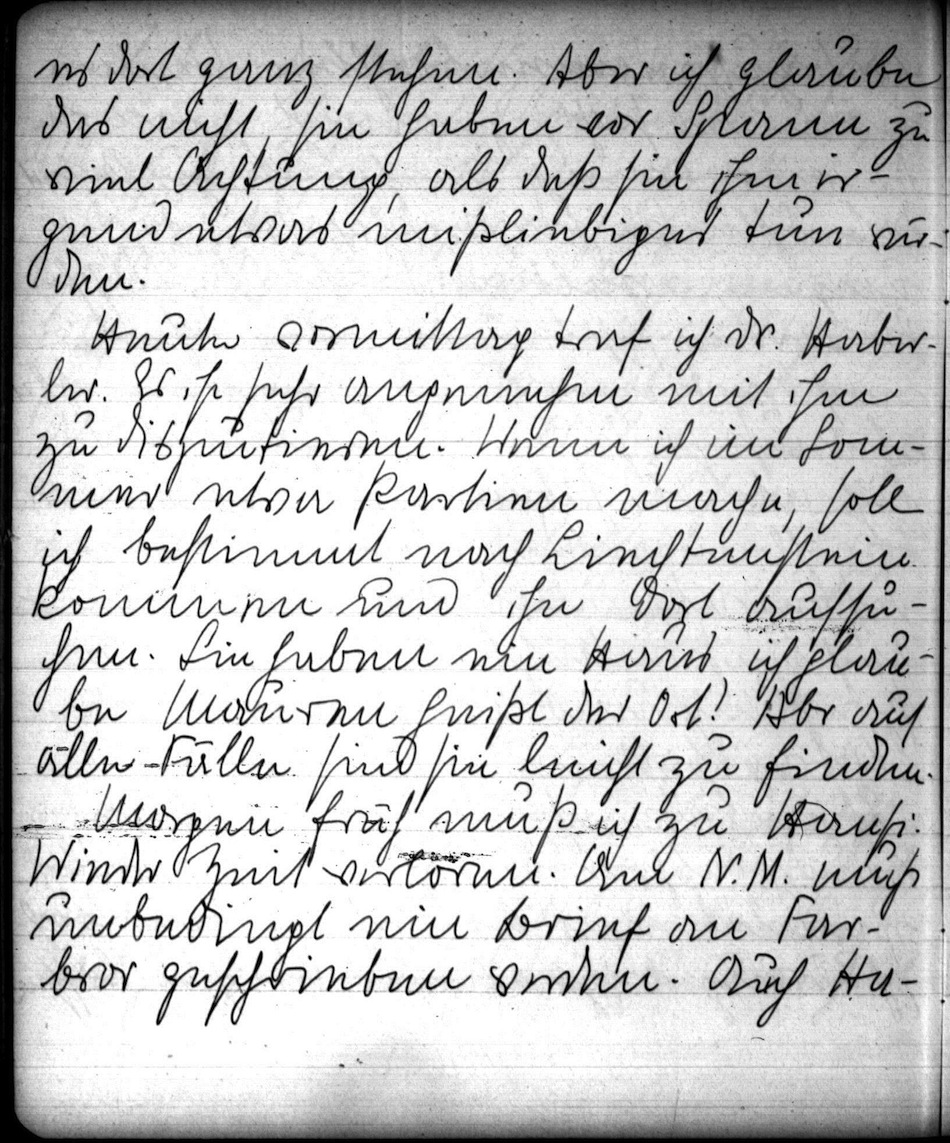 es dort ganz stehen. Aber ich glaube
das nicht, sie haben vor Spann zu
viel Achtung, als daß sie ihm ir-
gend etwas mißliebiges tun wür-
den.
Heute vormittag traf ich Dr. Haber-
ler. Es ist sehr angenehm mit ihm
zu disputieren. Wenn ich im Som-
mer etwa Partien mache, soll
ich bestimmt nach Liechtenstein
kommen und ihn dort aufsu-
chen. Sie haben ein Haus, ich glau-
be Mauren heißt der Ort! Aber auf
alle Fälle sind sie leicht zu finden.
Morgen früh muß ich zu
Wieder Zeit verloren. Am N.M. muß
unbedingt ein Brief an Far-
bror geschrieben werden. Auch He-